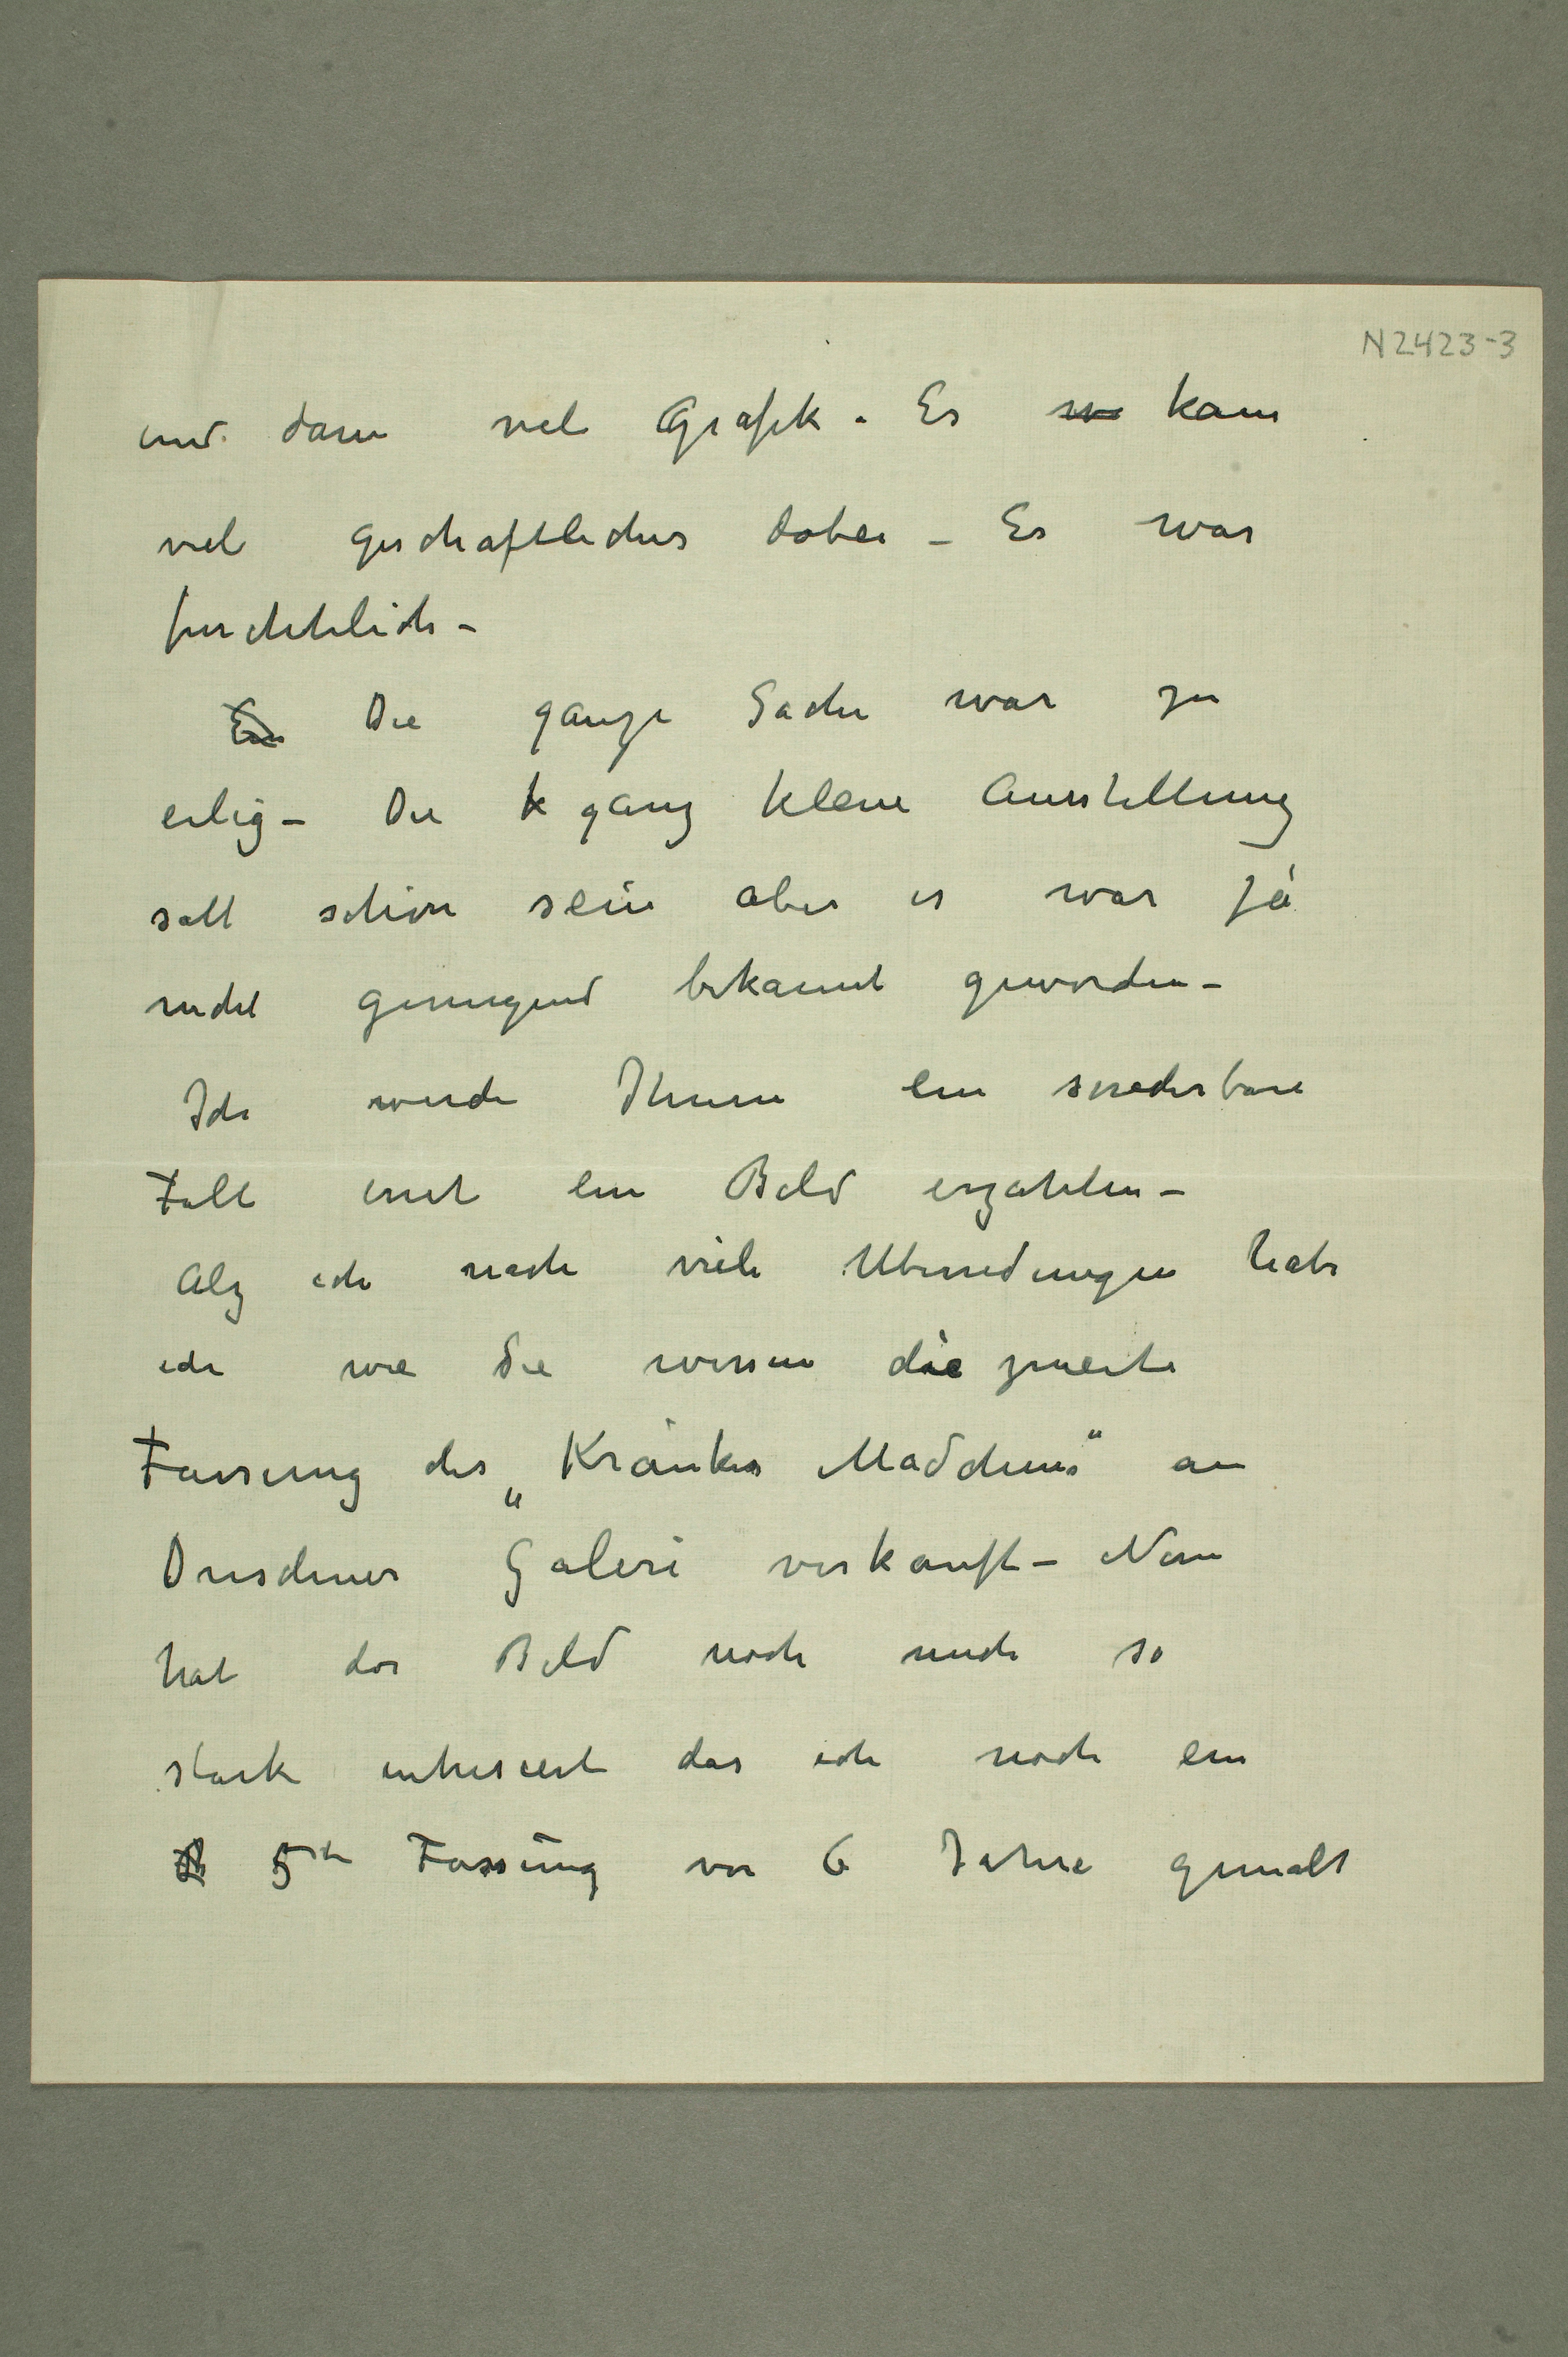 N2423-3
und dann viel Grafik. Es w kam
viel geschaftliches dabei – Es war
furchtlich –
Ein Die ganze Sache war zu
eilig – Die k ganz kleine Ausstellung
soll schön sein aber es war ja
nicht genugend bekannt geworden –
Ich werde Ihnen ein sonderbare
Fall mit ein Bild erzahlen –
Alz ich nach viele Uberredungen habe
ich wie Sie wissen die zweite
Fassung des „Krankes Madchens“ an
Dresdener Galeri verkauft – Nun
hat das Bild noch mich so
stark intresiert das ich noch ein
5te Fassung vor 6 Jahre gemalt